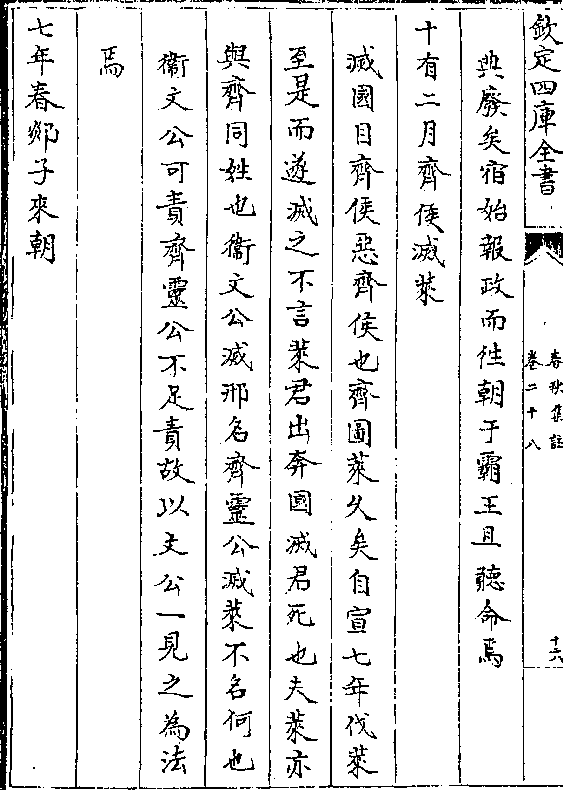 欽定四庫全書
春秋集註
卷二十八
十六
典廢矣宿始報政而徃朝于霸王且聽命焉
十有二月齊侯滅萊
滅國目齊侯惡齊侯也齊圖萊久矣自宣七年伐萊
至是而遂滅之不言萊君出奔國滅君死也夫萊亦
與齊同姓也衞文公滅邢名齊靈公滅萊不名何也
衞文公可責齊靈公不足責故以文公一見之為法
焉
七年春郯子來朝